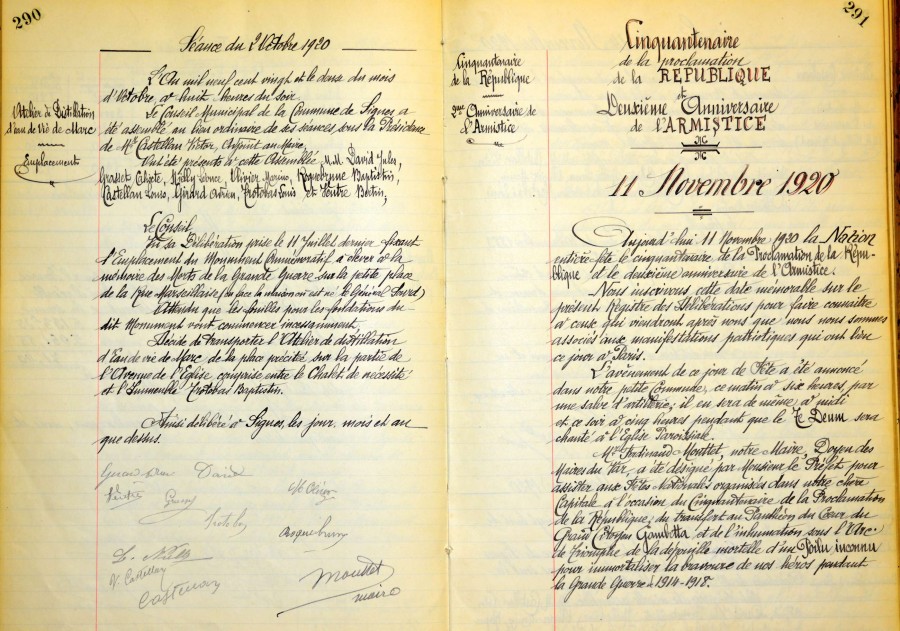 290
Séance du 2 Octobre 1920
L'Atelier de Distillation
d'eau de Vie de Marc
Emplacement
L'An mil neuf cent vingt et le deux du mois
d'Octobre, à huit heures du soir
Le Conseil Municipal de la Commune de Signes a
été assemblé au lieu ordinaire de ses séances sous la Présidence
de Mr Castellan Victor, Adjoint au Maire,
Ont été présents à cette Assemblée, M.M. David Jules,
Grasset Calixte, Nölly Léonce, Olivier Marino, Roquebrune Baptistin,
Castellan Louis, Girard Adrien, Trotobas Louis et Hentre Bertin,
Le Conseil
Vu sa Délibération prise le 11 Juillet dernier fixant
l'Emplacement du Monument Commémoratif à élever à la
mémoire des Morts de la Grande Guerre sur la petite place
de la Rue Marseillaise (en face la maison où est né le Général )
Attendu que les fouilles pour les fondations du-
dit Monument vont commencer incessamment,
Décide de transporter l'Atelier de distillation
d'Eau de vie de Marc de la place précitée sur la partie de
l'Avenue de l'Eglise comprise entre le Chalet de nécessité
et l'Immeuble Trotobas Baptistin.
Ainsi délibéré à Signes, les jour, mois et an
que dessus.
David
Trotobas
V. Castellan
Castellan
Mouttet
maire
291
Cinquantenaire
de la République
2ème Anniversaire de
l'Armistice
Cinquantenaire
de la proclamation
de la REPUBLIQUE
et
Deuxième Anniversaire
de l'ARMISTICE
11 Novembre 1920
Aujourd'hui 11 Novembre 1920 la Nation
entière fête le cinquantenaire de la Proclamation de la Répu-
blique et le deuxième anniversaire de l'Armistice.
Nous inscrivons cette date mémorable sur le
présent Registre des Délibérations pour faire connaître
à ceux qui viendront après nous que nous nous sommes
associés aux manifestations patriotiques qui ont lieu
ce jour à Paris.
L'avènement de ce jour de Fête a été annoncé
dans notre petite Commune, ce matin à six heures par
une salve d'artillerie; il en sera de même à midi
et ce soir à cinq heures pendant que le Te Deum sera
chanté à l'Eglise Paroissiale.
Mr Ferdinand Mouttet, notre Maire, Doyen des
Maires du Var, a été désigné par Monsieur le Préfet pour
assister aux Fêtes Nationales organisées dans notre chère
Capitale à l'occasion du Cinquantenaire de la Proclamation
de la République, du transfert au Panthéon du Cœur du
Grand Citoyen Gambetta et de l'inhumation sous l'Arc
de Triomphe de la dépouille mortelle d'un Poilu inconnu
pour immortaliser la bravoure de nos héros pendant
la Grande Guerre 1914-1918.